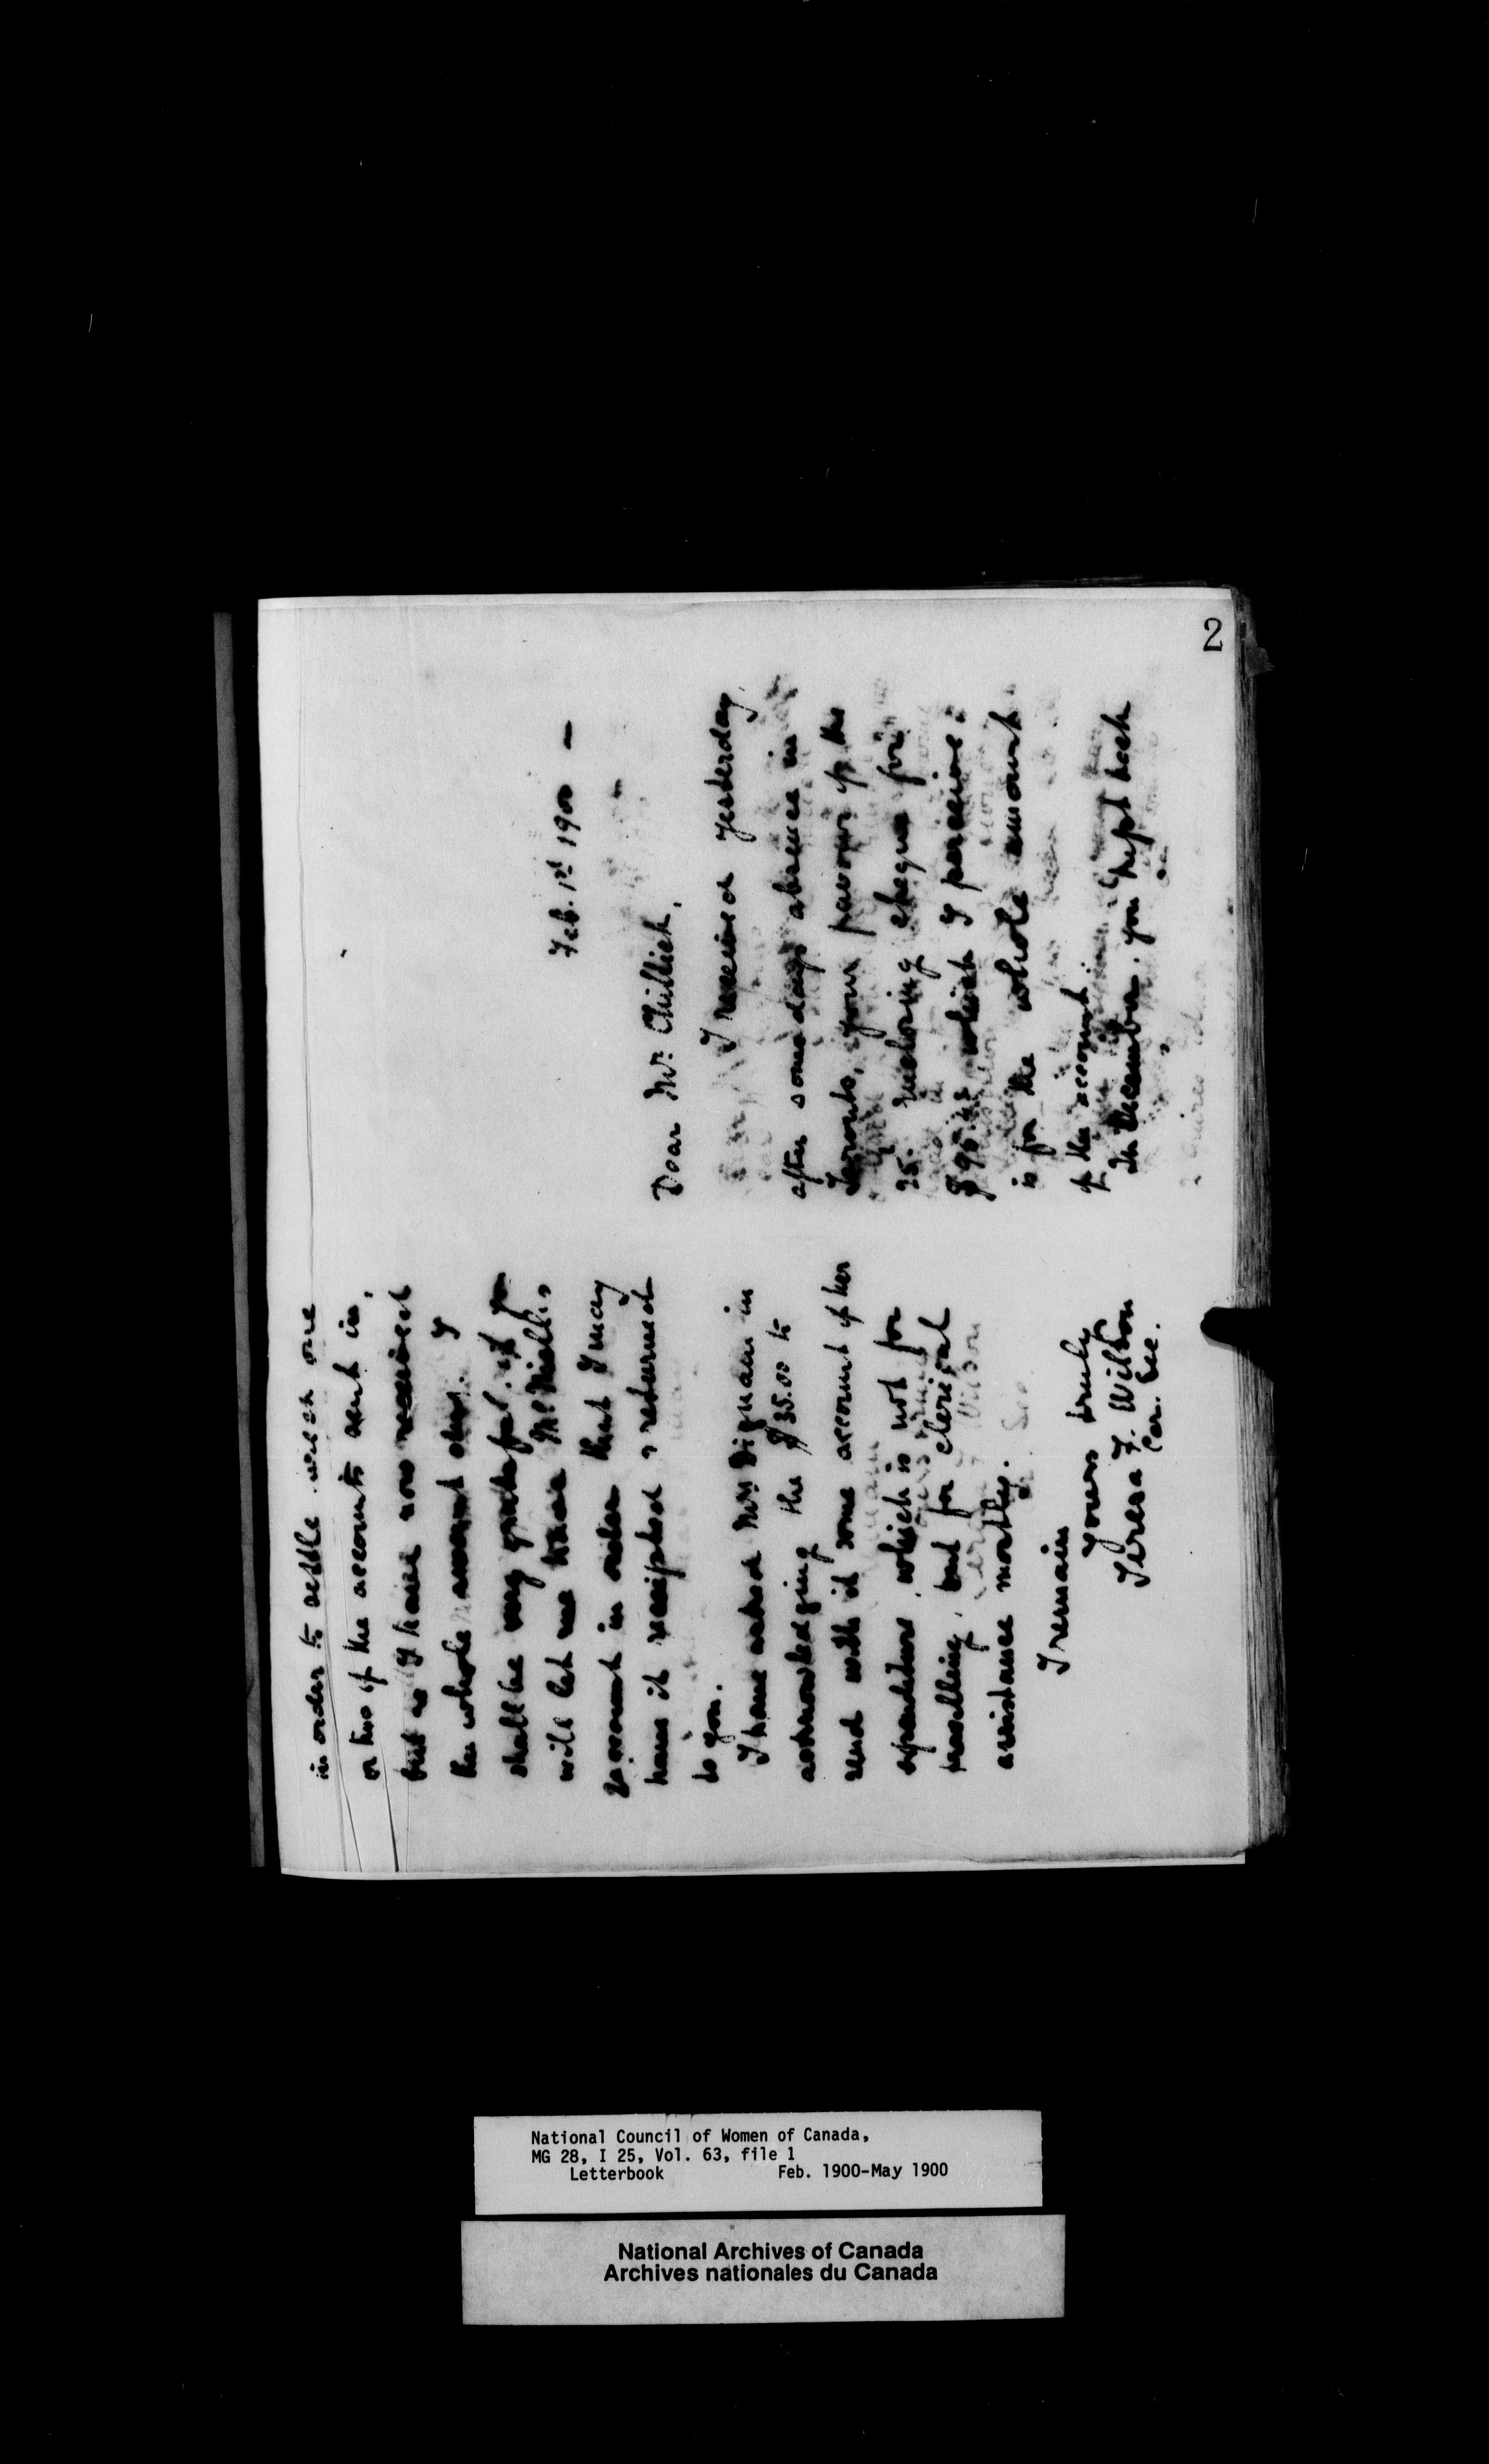 2
Feb. 1st 1900 —
Dear Mr. Chillich,
I received yesterday,
after some days absence in
Toronto, your favour of the
25. enclosing cheque for
which I perceive
is for the whole amount
of the account
In December, you kept back
in order to settle one
or two of the accounts sent in,
but as I have now received
the whole amount due. I
shall be very grateful if you
will let me have
account in order that I may
have it receipted & returned
to you.
I have asked Mrs Dignam in
acknowledging the $35.00 to
send with it some account of her
expenditure, which is not for
travelling, but for clerical
assistance mostly.
I remain
Yours truly
Teresa F. Wilson
Cor. Sec.
National Council of Women of Canada,
MG 28, I 25, Vol. 63, file 1
Letterbook Feb. 1900-May 1900
National Archives of Canada
Archives nationales du Canada